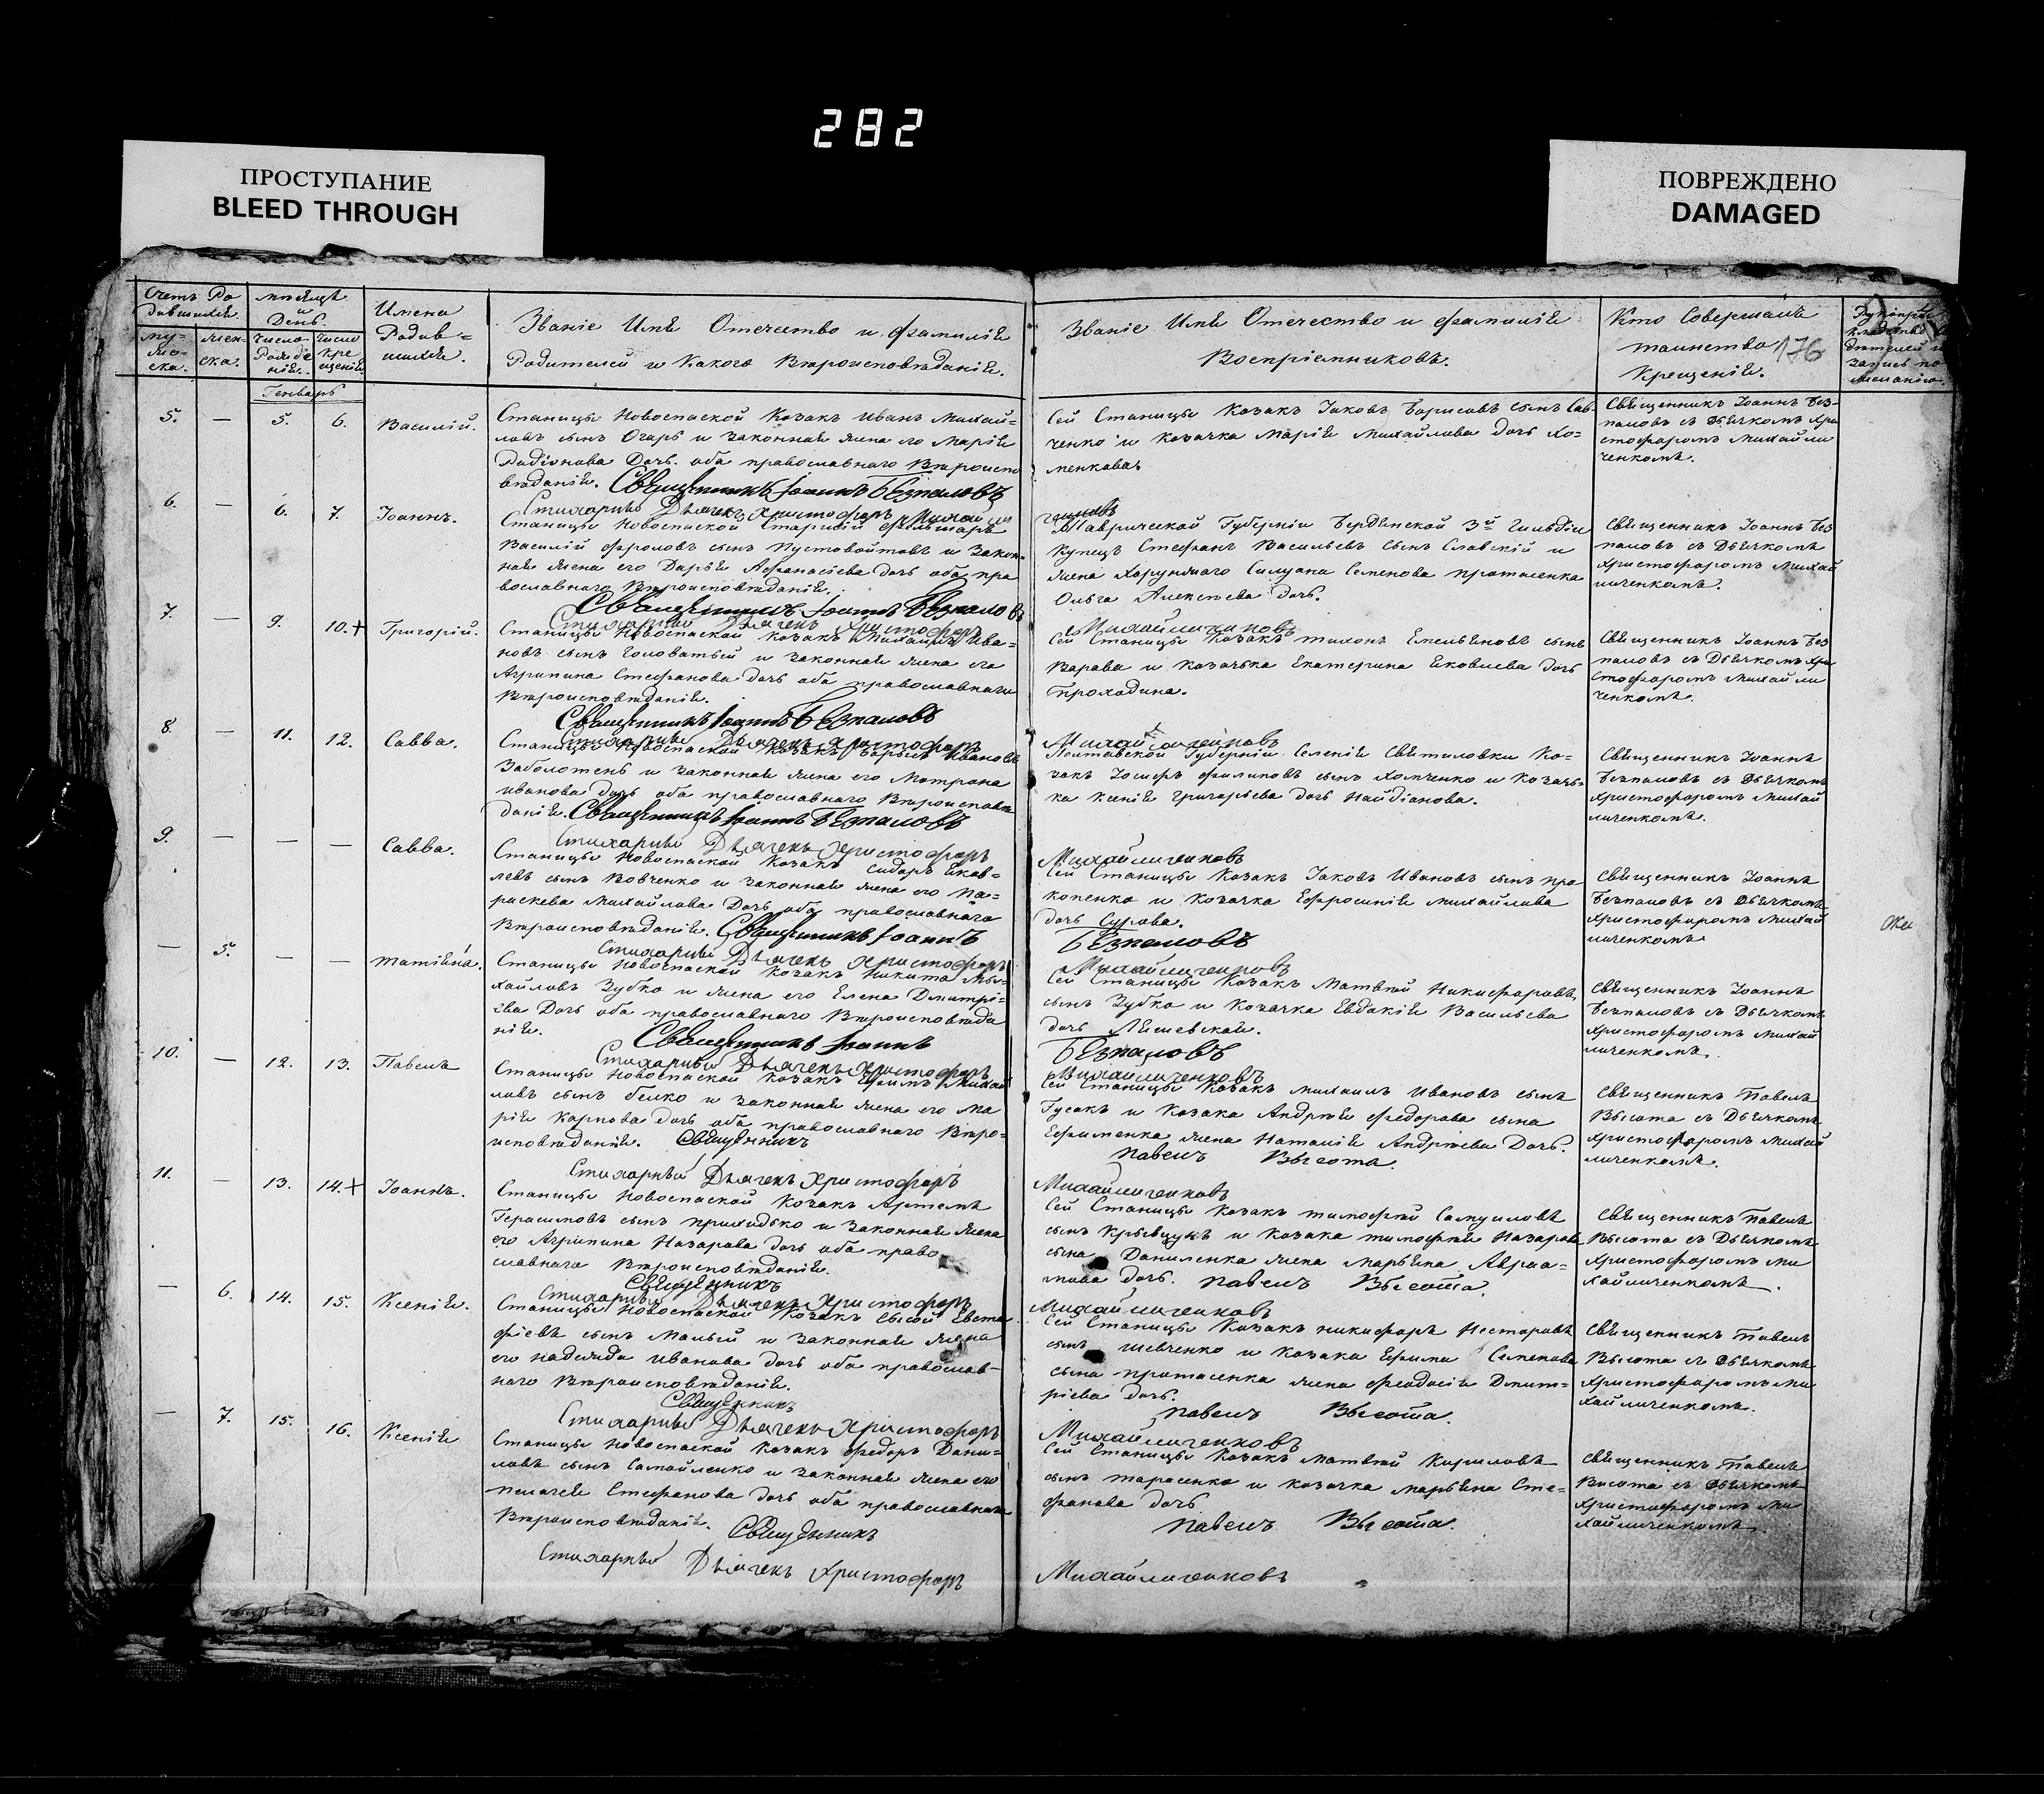 282
ПРОСТУПАНИЕ
BLEED THROUGH
ПОВРЕЖДЕНО
DAMAGED
Счетъ Ро
дившихся.
му-
жес-
ска.
жен-
ска.
мѣсяцъ
и
День.
Число
Рожде
нія.
Число
Кре
щенія.
Имена
Родив=
шихся.
Званіе Имя Отечество и фамилія
Родителей и Какого Вѣроисповѣданія.
Званіе Имя Отечество и фамилія
Воспріемниковъ.
Кто Совершалъ
таинство
Крещенія.
176
Генварь
5. — 5. 6. Василій.
Станицы Новоспаской Козакъ Иванъ Михай=
ловъ сынъ Огарь и законная жена его Марія
Родіонова Дочь. оба православнаго Вѣроиспо
вѣданія. Священникъ Іоаннъ Безпаловъ
Стихарный Дьячекъ Христофоръ Михай
Сей Станицы Козакъ Іаковъ Борисовъ сынъ Сав
ченко и Козачка Марія Михайлова дочь Хо=
менкова
Священникъ Іоаннъ Без-
паловъ съ Дьячкомъ Хри
стофоромъ Михайли
ченкомъ.
6. — 6. 7. Іоаннъ.
Станицы Новоспаской Старшій фельшаръ
Василій Фроловъ сынъ Пустовойтовъ и Закон=
ная жена его Дарья Афанасіева дочь оба пра
вославнаго Вѣроисповѣданія.
Священникъ Іоаннъ Безпаловъ
Стихарный Дьячекъ Христофоръ
Таврической Губерніи Бердянской 3й Гильдіи
Купецъ Стефанъ Васильевъ сынъ Славскій и
жена Хорунжаго Силуана Семенова Протасенка
Ольга Алексѣева дочь.
Михайличенковъ
Священникъ Іоаннъ Без
паловъ съ Дьячкомъ
Христофоромъ Михай
личенкомъ.
7. — 9. 10.+ Григорій.
Станицы Новоспаской Козакъ Ива=
новъ сынъ Головатый и законная жена его
Агрипина Стефанова дочь оба православнаго
Вѣроисповѣданія.
Священникъ Іоаннъ Безпаловъ
Стихарный Дьячекъ Христофоръ
Сей Станицы Козакъ тихонъ Емельяновъ сынъ
Варава и Козачька Екатерина Яковлева дочь
Проходина.
Михайличенковъ
Священникъ Іоаннъ Без
паловъ съ Дьячкомъ Хри
стофоромъ Михайли
ченкомъ.
8. — 11. 12. Савва.
Станицы Новоспаской Козакъ Ивановъ
Заболотень и законная жена его Матрона
Иванова дочь оба православнаго Вѣроисповѣ
данія. Священникъ Іоаннъ Безпаловъ
Стихарный Дьячекъ Христофоръ
Полтавской Губерніи Селенія Свѣтиловки Ко=
закъ Іосифъ Филиповъ сынъ Хомченко и Козачь=
ка Ксенія Григорьева дочь Найдіонова.
Михайличенковъ
Священникъ Іоаннъ
Безпаловъ съ Дьячкомъ
Христофоромъ Михай
личенкомъ.
9. — — — Савва.
Станицы Новоспаской Козакъ Сидоръ Яков=
левъ сынъ Вовченко и законная жена его Па=
раскева Михайлова Дочь оба православнаго
Вѣроисповѣданія. Священникъ Іоаннъ
Стихарный Дьячекъ Христофоръ
Сей Станицы Козакъ Іаковъ Ивановъ сынъ Про
копенко и Козачка Ефросинія Михайлова
дочь Сурова.
Безпаловъ
Михайличенковъ
Священникъ Іоаннъ
Безпаловъ съ Дьячкомъ
Христофоромъ Михай
личенкомъ
— 5. — — татіяна.
Станицы Новоспаской Козакъ Никита Ми=
хайловъ Зубко и жена его Елена Дмитрі=
ева Дочь оба православнаго Вѣроисповѣда
нія. Священникъ Іоаннъ
Стихарный Дьячекъ Христофоръ
Сей Станицы Козакъ Матвѣй Никифоровъ
сынъ Зубко и Козачка Евдакія Васильева
дочь Лишевская.
Безпаловъ
Михайличенковъ
Священникъ Іоаннъ
Безпаловъ съ Дьячкомъ
Христофоромъ Михай
личенкомъ.
10. — 12. 13. Павелъ
Станицы Новоспаской Козакъ Ефимъ Михай
ловъ сынъ белко и законная жена его Ма
рія Карпова дочь оба православнаго Вѣро=
исповѣданія. Священникъ
Стихарный Дьячекъ Христофоръ
Сей Станицы Козакъ Михаилъ Ивановъ сынъ
Гусакъ и Козака Андрѣя Федорова сына
Ефименка жена Наталія Андрѣева Дочь.
Павелъ Высота.
Михайличенковъ
Священникъ Павелъ
Высота съ Дьячкомъ
Христофоромъ Михай
личенкомъ.
11. — 13. 14.+ Іоаннъ.
Станицы Новоспаской Козакъ Артемъ
Герасимовъ сынъ Прихидько и Законная жена
его Агрипина Назарова дочь оба право
славнаго Вѣроисповѣданія.
Священникъ
Стихарный Дьячекъ Христофоръ
Сей Станицы Козакъ тимофѣй Самуиловъ
сынъ Крывцунъ и Козака тимофѣя Назарова
сына Даниленка жена Марьяна Авраа=
мова дочь. Павелъ Высота.
Михайличенковъ
Священникъ Павелъ
Высота съ Дьячкомъ
Христофоромъ Ми
хайличенкомъ.
— 6. 14. 15. Ксенія.
Станицы Новоспаской Козакъ Сысой Евста
фіевъ сынъ Малый и законная жена
его Надежда Иванова дочь оба православ=
наго Вѣроисповѣданія.
Священникъ
Стихарный Дьячекъ Христофоръ
Сей Станицы Козакъ Никифоръ Несторовъ
сынъ Шевченко и Козака Ефима Семенова
сына Протасенка жена Феодосія Дмит=
ріева дочь.
Павелъ Высота.
Михайличенковъ
Священникъ Павелъ
Высота съ Дьячкомъ
Христофоромъ Ми
хайличенкомъ.
— 7. 15. 16. Ксенія
Станицы Новоспаской Козакъ Федоръ Дани=
ловъ сынъ Самойленко и законная жена его
Пелагея Стефанова дочь оба православнаго
Вѣроисповѣданія. Священникъ
Стихарный Дьячекъ Христофоръ
Сей Станицы Козакъ Матвѣй Кириловъ
сынъ тарасенко и козачка Марьяна Сте=
фанова дочь
Павелъ Высота.
Михайличенковъ
Священникъ Павелъ
Высота съ Дьячкомъ
Христофоромъ Ми
хайличенкомъ.